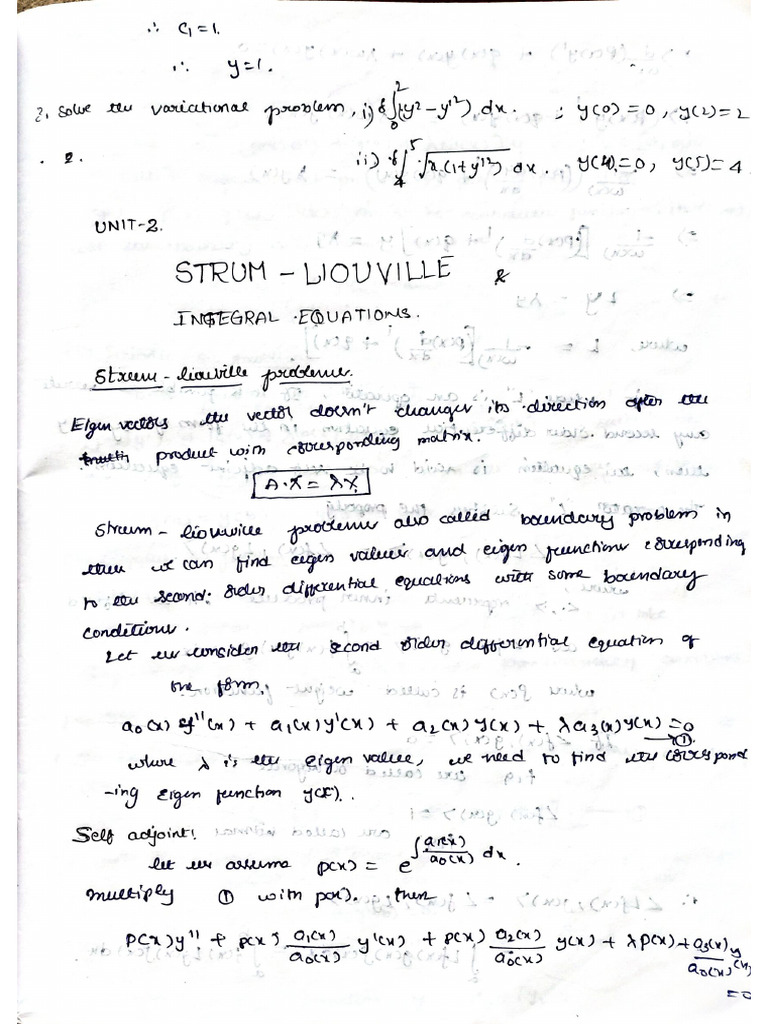 ∴ C₁ = 1.
∴ y = 1.
2. Solve the variational problem, i) ∫₀² (y² - y'²) dx. ; y(0) = 0, y(2) = 2
. 2. ii) ∫₄⁵ √x(1+y'²) dx. y(4) = 0, y(5) = 4
UNIT-2.
STRUM - LIOUVILLE &
INTEGRAL EQUATIONS.
Strum - liouville problem.
Eigen vectors the vector doesn't changes its direction after the
product with corresponding matrix.
A.X = λX.
Strum - liouville problem also called boundary problem in
then we can find eigen values and eigen functions corresponding
to the second order differential equations with some boundary
conditions.
Let us consider the second order differential equation of
the form,
a₀(x) y''(x) + a₁(x) y'(x) + a₂(x) y(x) + λ a₃(x) y(x) = 0 → ①.
where λ is the eigen value, we need to find the correspond
-ing eigen function y(x).
Self adjoint:
let us assume p(x) = e^∫ a₁(x)/a₀(x) dx .
multiply ① with p(x). then
P(x) y'' + p(x) a₁(x)/a₀(x) y'(x) + p(x) a₂(x)/a₀(x) y(x) + λ p(x) + a₃(x)/a₀(x) y(x) = 0